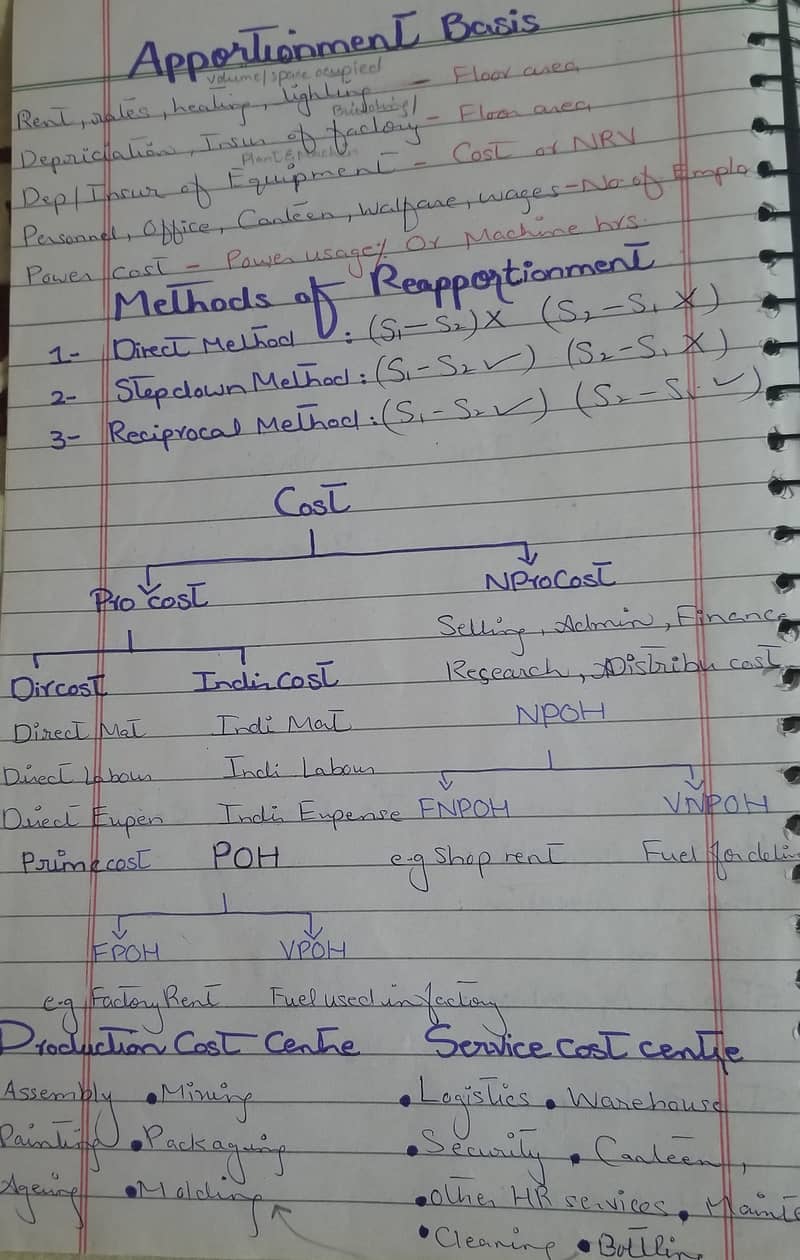 Apportionment Basis
volume/space ocupied
Rent, rates, heating, lighting - Floor area
Depriciation, Insur of factory - Floor area
Dep/Insur of Equipment - Cost or NRV
Personnel, Office, Canteen, Walfare, wages - No of Emplo
Power Cost - Power usage% Or Machine hrs.
Methods of Reapportionment
1- Direct Method : (S1-S2)X (S2-S1 X)
2- Stepdown Method : (S1-S2 ✓) (S2-S1 X)
3- Reciprocal Method : (S1-S2 ✓) (S2-S1 ✓)
Cost
Pro Cost NProCost
Selling, Admin, Finance
Dir cost Indir Cost Research, Distribu cost
Direct Mat Indi Mat NPOH
Direct Labour Indi Labour
Direct Expen Indir Expense FNPOH VNPOH
Prime cost POH e.g Shop rent Fuel for deli
FPOH VPOH
e.g Factory Rent Fuel used in factory
Production Cost Centre Service cost centre
Assembly • Mining • Logistics • Warehouse
Painting • Packaging • Security • Canteen,
Ageing • Molding • other HR services • Maint
• Cleaning • Bottlin